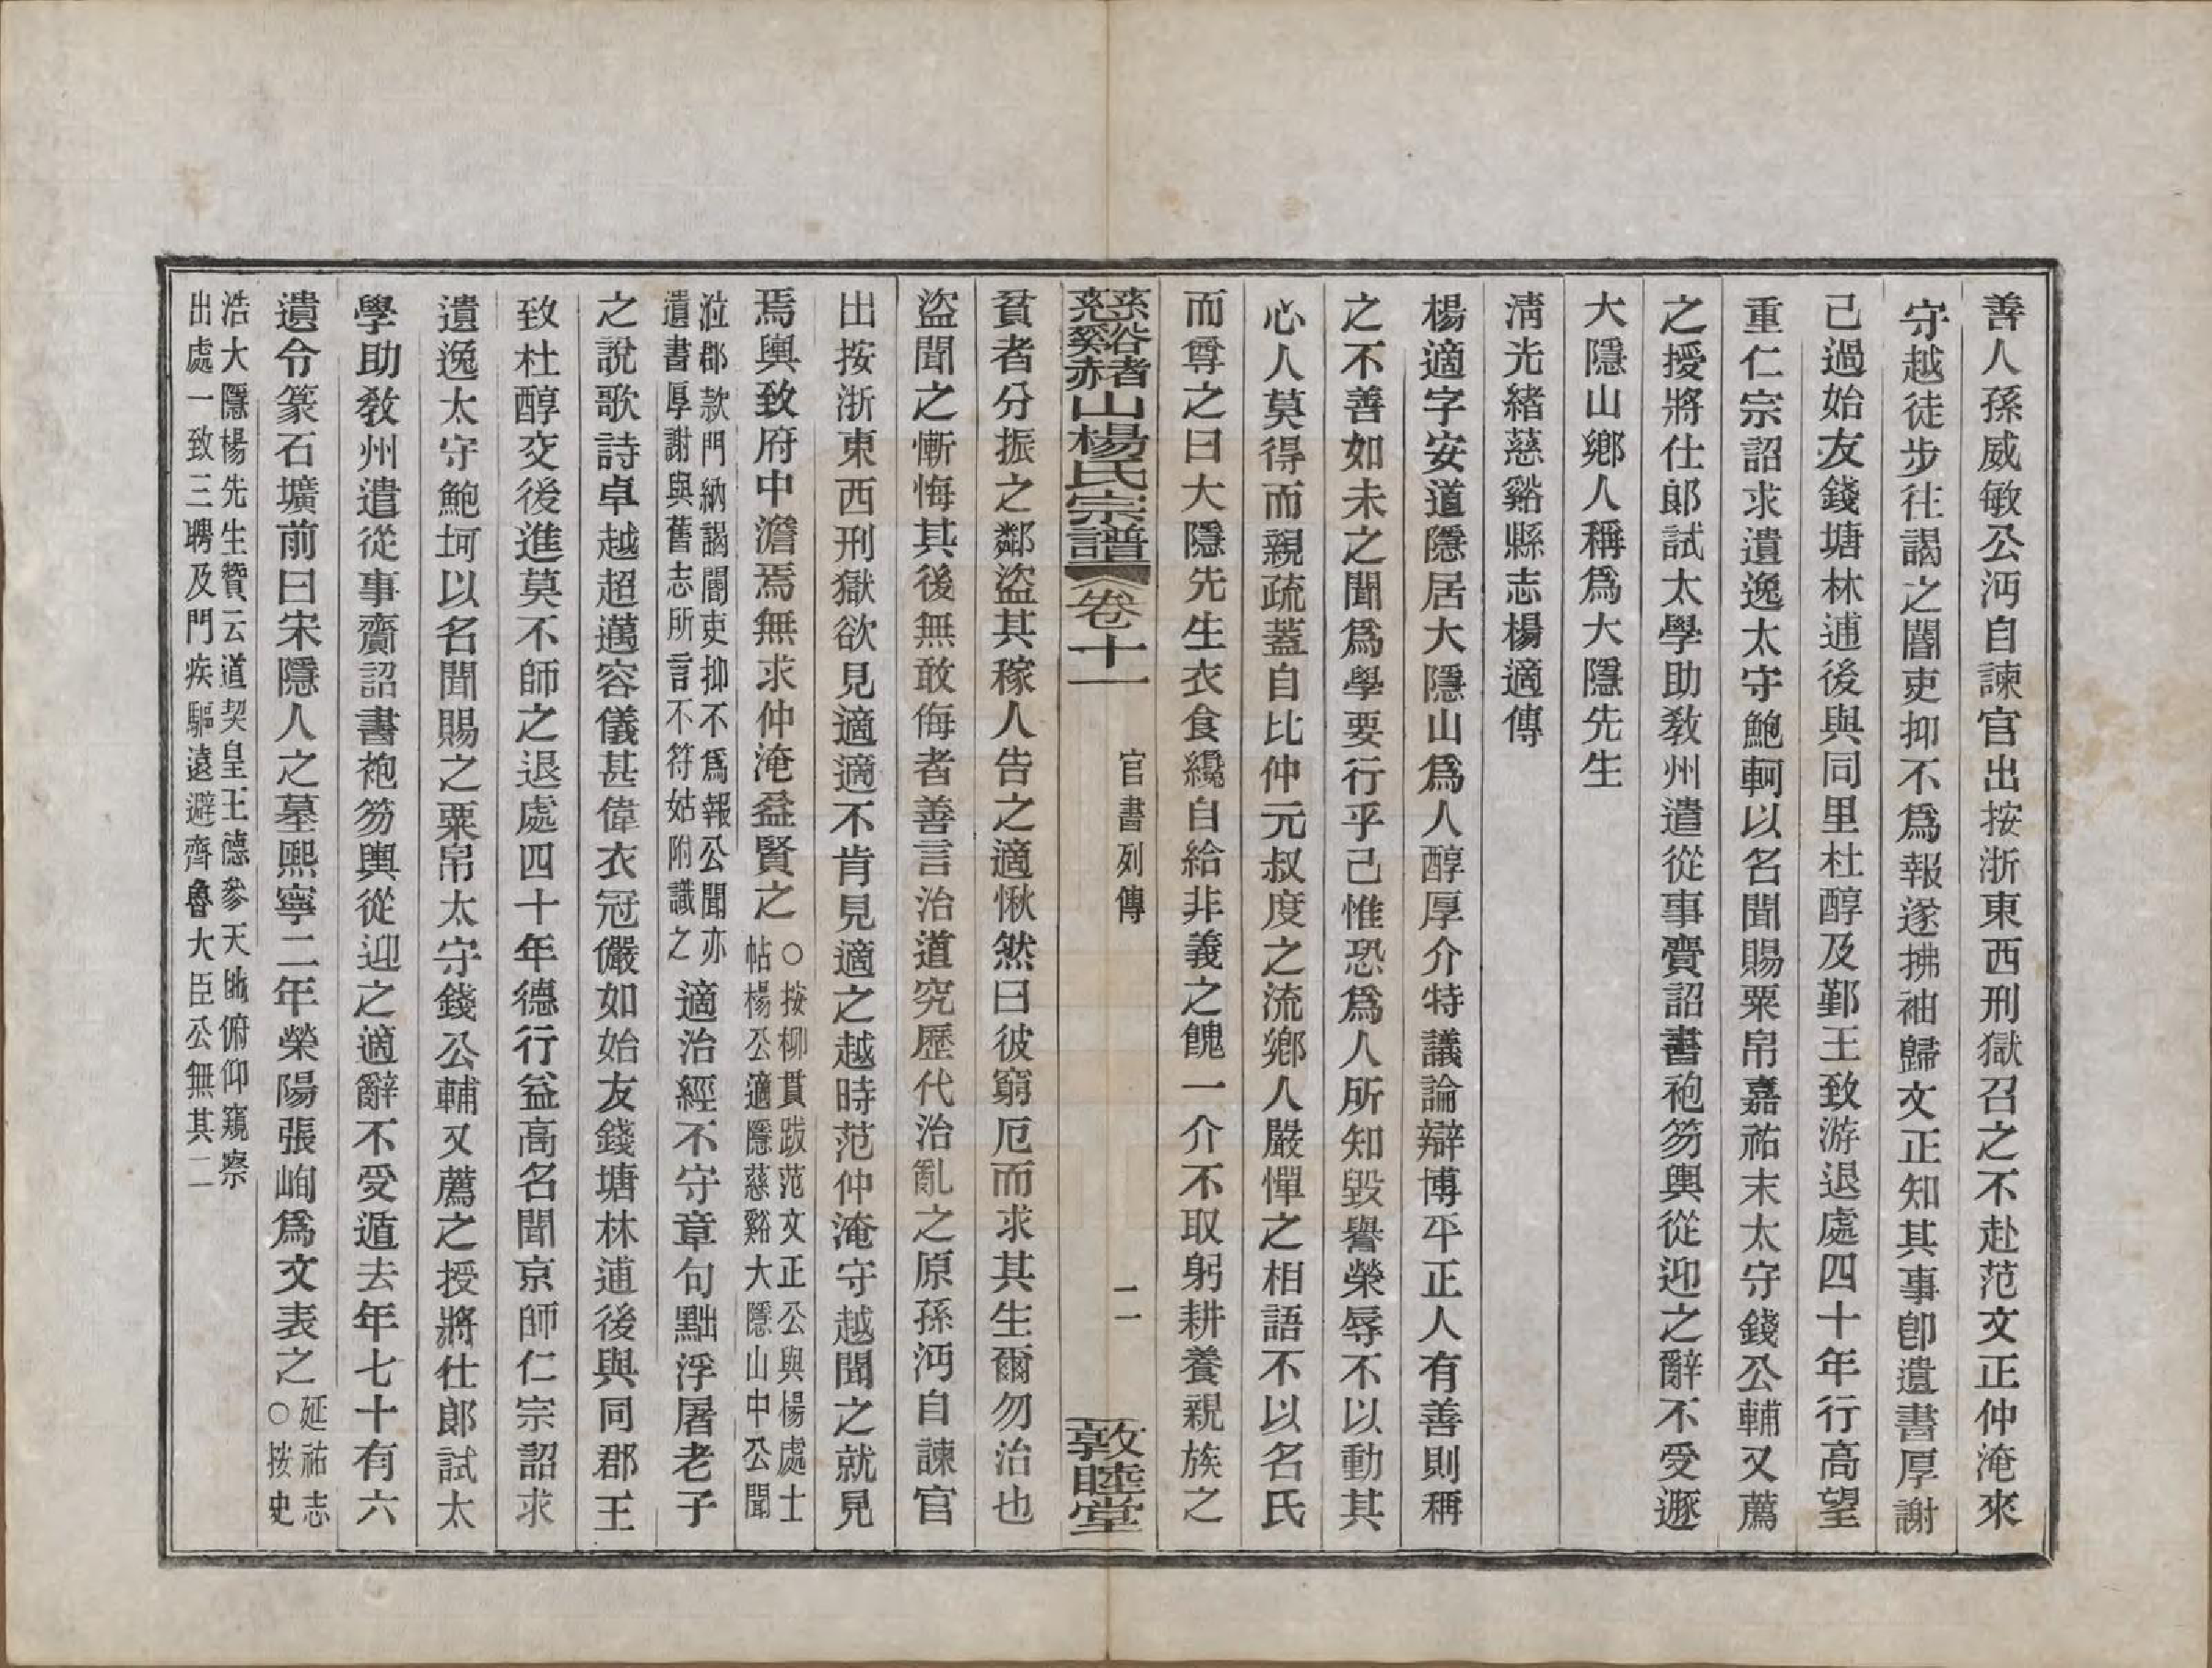 善人孫威敏公沔自諫官出按浙東西刑獄召之不赴范文正仲淹來
守越徒步往謁之閽吏抑不爲報遂拂袖歸文正知其事卽遺書厚謝
己過始友錢塘林逋後與同里杜醇及鄞王致游退處四十年行高望
重仁宗詔求遺逸太守鮑軻以名聞賜粟帛嘉祐末太守錢公輔又薦
之授將仕郞試太學助敎州遣從事賷詔書袍笏輿從迎之辭不受遯
大隱山鄕人稱爲大隱先生
淸光緒慈谿縣志楊適傳
楊適字安道隱居大隱山爲人醇厚介特議論辯博平正人有善則稱
之不善如未之聞爲學要行乎己惟恐爲人所知毀譽榮辱不以動其
心人莫得而親疏蓋自比仲元叔度之流鄕人嚴憚之相語不以名氏
而尊之曰大隱先生衣食纔自給非義之餽一介不取躬耕養親族之
慈谿赭山楊氏宗譜 卷十一 官書列傳 二 敦睦堂
貧者分振之鄰盜其稼人告之適愀然曰彼窮厄而求其生爾勿治也
盜聞之慚悔其後無敢侮者善言治道究歷代治亂之原孫沔自諫官
出按浙東西刑獄欲見適適不肯見適之越時范仲淹守越聞之就見
焉輿致府中澹焉無求仲淹益賢之
○按柳貫跋范文正公與楊處士
帖楊公適隱慈谿大隱山中公聞
涖郡款門納謁閽吏抑不爲報公聞亦
遺書厚謝與舊志所言不符姑附識之
適治經不守章句黜浮屠老子
之說歌詩卓越超邁容儀甚偉衣冠儼如始友錢塘林逋後與同郡王
致杜醇交後進莫不師之退處四十年德行益高名聞京師仁宗詔求
遺逸太守鮑坷以名聞賜之粟帛太守錢公輔又薦之授將仕郞試太
學助敎州遣從事齎詔書袍笏輿從迎之適辭不受遁去年七十有六
遺令篆石壙前曰宋隱人之墓熙寧二年榮陽張峋爲文表之
延祐志
○按史
浩大隱楊先生贊云道契皇王德參天地俯仰窺察
出處一致三聘及門疾驅遠避齊魯大臣公無其二